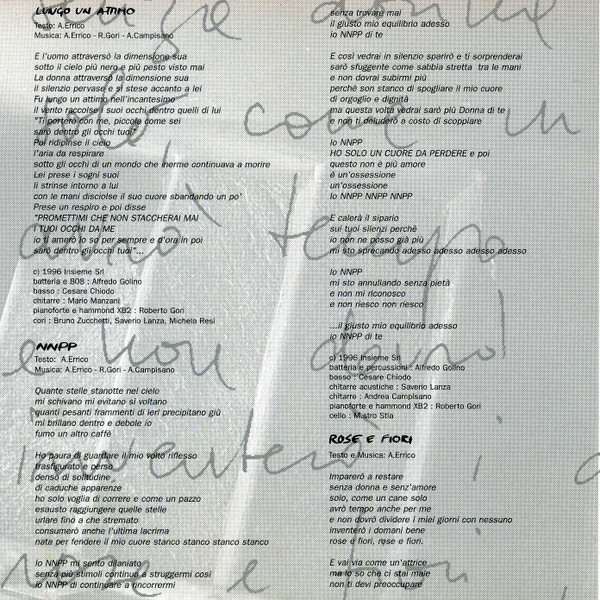 LUNGO UN ATTIMO
Testo: A.Errico
Musica: A.Errico - R.Gori - A.Campisano
E l'uomo attraversò la dimensione sua
sotto il cielo più nero e più pesto visto mai
La donna attraversò la dimensione sua
il silenzio pervase poi stese accanto a lei
Fu lungo un attimo nell'incantesimo
il vento raccolse i suoi occhi dentro quelli di lui
"Ti porterò con me, piccola come sei
sarò dentro gli occhi tuoi"
Poi ridipinse il cielo
l'aria da respirare
sotto gli occhi di un mondo che inerme continuava a morire
Lei prese i sogni suoi
li strinse intorno a lui
con le mani disciolse il suo cuore sbandando un po'
Prese un respiro e poi disse
"PROMETTIMI CHE NON STACCHERAI MAI
I TUOI OCCHI DA ME
io ti amerò lo so per sempre e d'ora in poi
sarò dentro gli occhi tuoi"...
c) 1996 Insieme Srl
batteria e 808 : Alfredo Golino
basso : Cesare Chiodo
chitarre : Mario Manzani
pianoforte e hammond XB2 : Roberto Gori
cori : Bruno Zucchetti, Saverio Lanza, Michela Resi
NNPP
Testo: A.Errico
Musica: A.Errico - R.Gori - A.Campisano
Quante stelle stanotte nel cielo
mi schivano mi evitano si voltano
quanti pesanti frammenti di ieri precipitano giù
mi brillano dentro e debole io
fumo un altro caffè
Ho paura di guardare il mio volto riflesso
trasfigurato e perso
denso di solitudine
di caduche apparenze
ho solo voglia di correre e come un pazzo
esausto raggiungere quelle stelle
urlare fino a che stremato
consumerò anche l'ultima lacrima
nata per fendere il mio cuore stanco stanco stanco stanco
Io NNPP mi sento dilaniato
senza più stimoli continuo a struggermi così
io NNPP di continuare a rincorrermi
senza trovare mai
il giusto mio equilibrio adesso
io NNPP di te
E così vedrai in silenzio sparirò e ti sorprenderai
sarò sfuggente come sabbia stretta tra le mani
e non dovrai subirmi più
perchè son stanco di spogliare il mio cuore
di orgoglio e dignità
ma questa volta vedrai sarò più Donna di te
e non ti deluderò a costo di scoppiare
Io NNPP
HO SOLO UN CUORE DA PERDERE e poi
questo non è più amore
è un'ossessione
un'ossessione
Io NNPP NNPP NNPP
E calerà il sipario
sui tuoi silenzi perchè
io non ne posso già più
mi sto sprecando adesso adesso adesso adesso
Io NNPP
mi sto annullando senza pietà
e non mi riconosco
e non riesco non riesco
...il giusto mio equilibrio adesso
io NNPP di te
c) 1996 Insieme Srl
batteria e percussioni : Alfredo Golino
basso : Cesare Chiodo
chitarre acustiche : Saverio Lanza
chitarre : Andrea Campisano
pianoforte e hammond XB2 : Roberto Gori
cello : M.stro Stla
ROSE E FIORI
Testo e Musica: A.Errico
Imparerò a restare
senza donna e senz'amore
solo, come un cane solo
avrò tempo anche per me
e non dovrò dividere i miei giorni con nessuno
inventerò i domani bene
rose e fiori, rose e fiori.
E vai via come un'attrice
ma lo so che ci stai male
non ti devi preoccupare